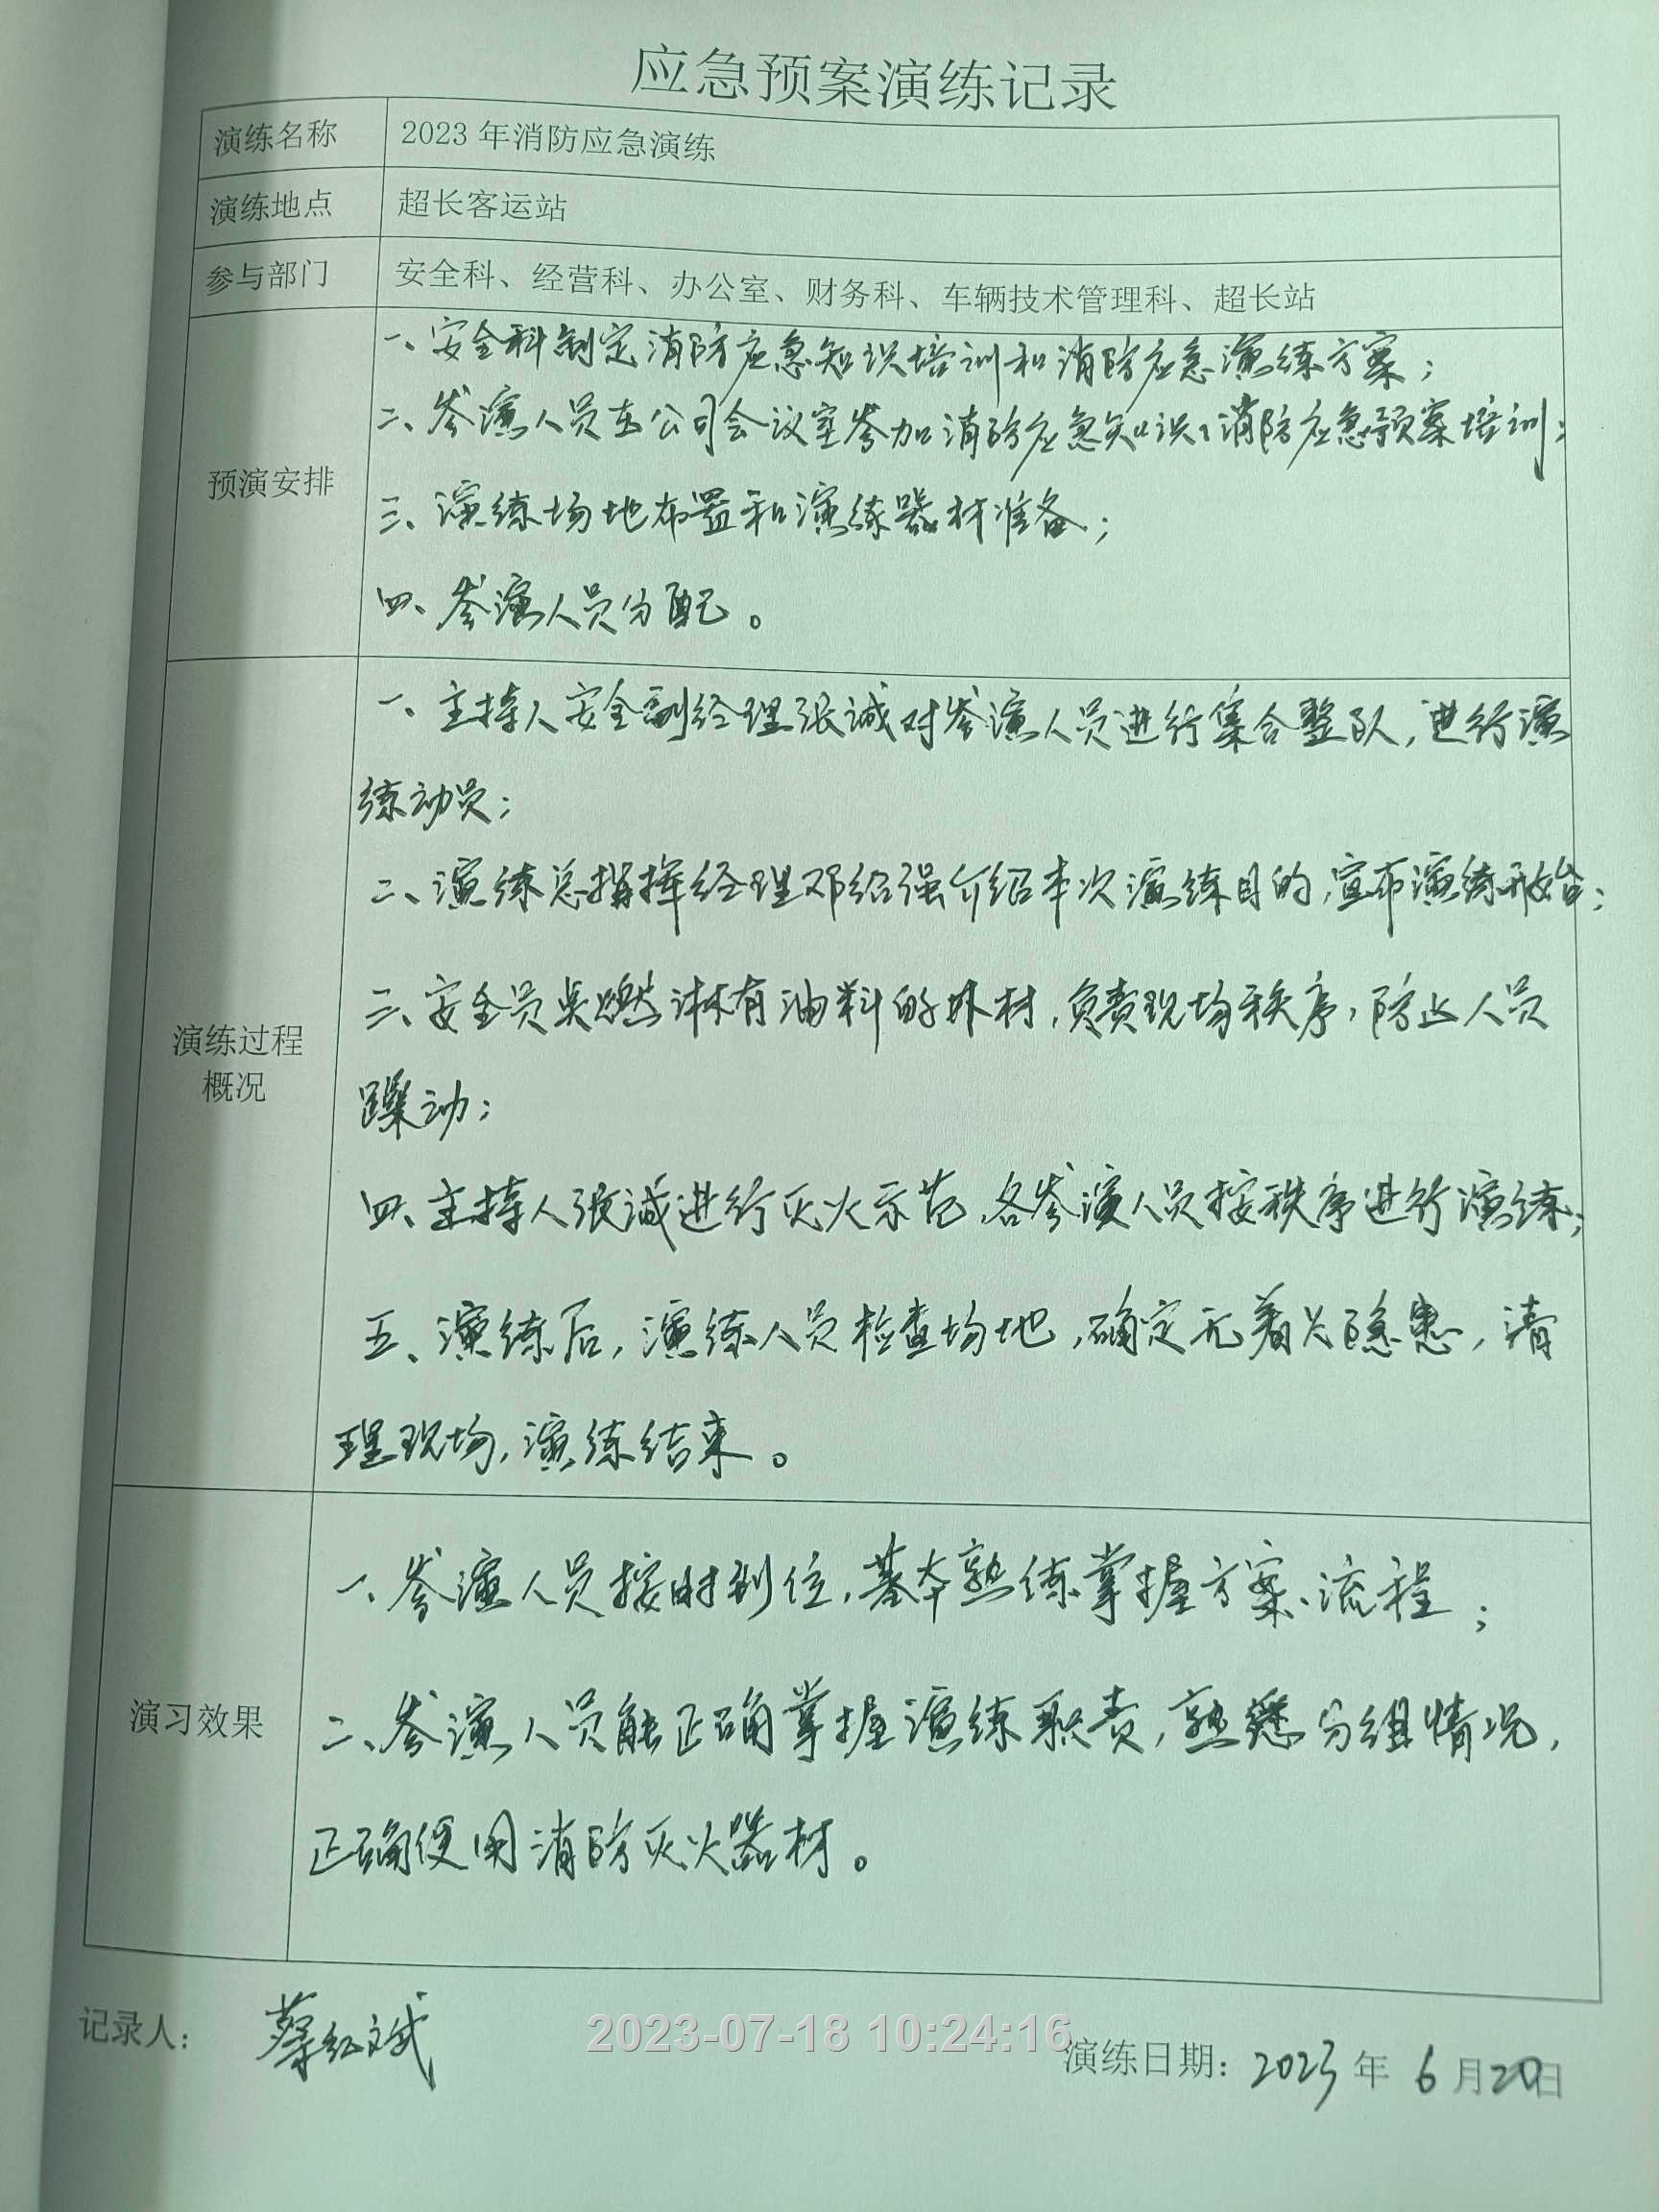 应急预案演练记录
演练名称 2023年消防应急演练
演练地点 超长客运站
参与部门 安全科、经营科、办公室、财务科、车辆技术管理科、超长站
预演安排
一、安全科制定消防应急知识培训和消防应急演练方案；
二、参演人员在公司会议室参加消防应急知识、消防应急预案培训；
三、演练场地布置和演练器材准备；
四、参演人员分配。
演练过程
概况
一、主持人安全副经理张诚对参演人员进行集合整队，进行演
练动员；
二、演练总指挥经理邓给强介绍本次演练目的，宣布演练开始；
三、安全员吴燃淋有油料的外材，负责现场秩序，防止人员
躁动；
四、主持人张诚进行灭火示范，各参演人员按秩序进行演练；
五、演练后，演练人员检查场地，确定无着火隐患，清
理现场，演练结束。
演习效果
一、参演人员按时到位，基本熟练掌握方案、流程；
二、参演人员能正确掌握演练职责，熟悉分组情况，
正确使用消防灭火器材。
记录人： 蔡红斌
2023-07-18 10:24:16
演练日期：2023年6月20日